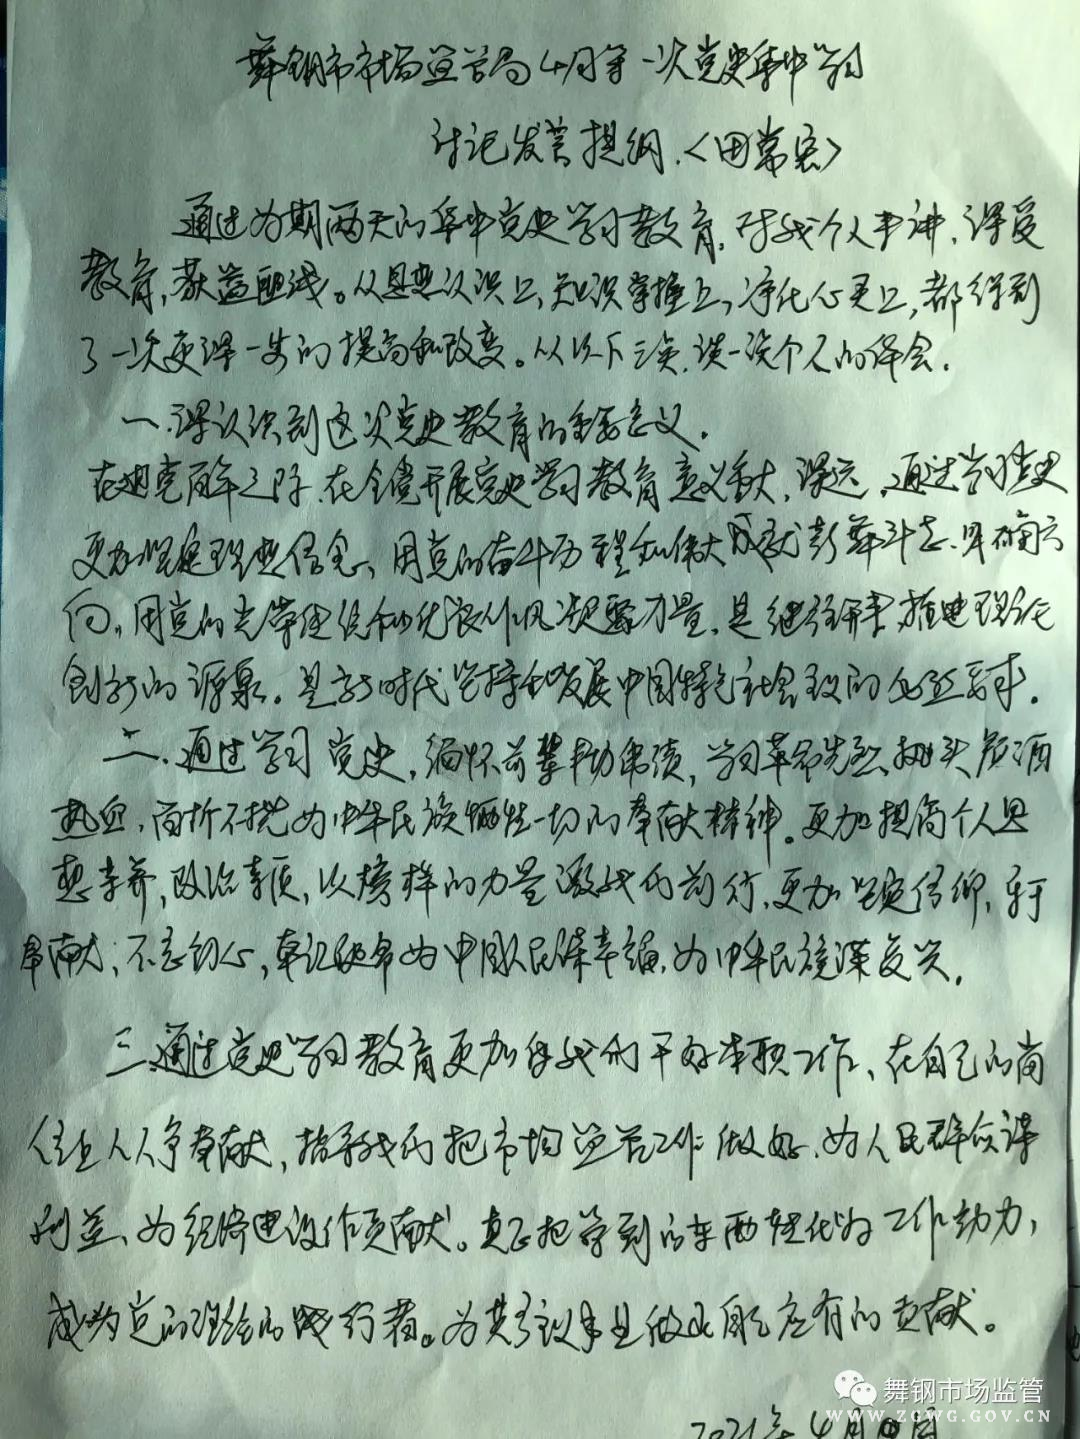 舞钢市市场监管局4月第一次党史集中学习
讨论发言提纲.〈田常宏〉
通过为期两天的集中党史学习教育,对我个人来讲,深受
教育,获益匪浅。从思想认识上,知识掌握上,净化心灵上,都得到
了一次更深一步的提高和改变。从以下三点,谈一谈个人的体会.
一.深认识到这次党史教育的重要意义.
在建党百年之际.在全党开展党史学习教育意义重大,深远,通过学习党史
更加坚定理想信念、用党的奋斗历程和伟大成就鼓舞斗志.明确方
向,用党的光荣传统和优良作风凝聚力量,是继往开来,推进理论
创新的源泉。是新时代坚持和发展中国特色社会主义的必然要求.
二、通过学习党史,缅怀前辈丰功伟绩,学习革命先烈抛头颅洒
热血,百折不挠为中华民族牺牲一切的奉献精神。更加提高个人思
想素养,政治素质,以榜样的力量激我们前行,更加坚定信仰,勇于
奉献,不忘初心,牢记使命为中国人民谋幸福,为中华民族谋复兴.
三通过党史学习教育更加使我们干好本职工作、在自己的岗
位上人人争奉献,指导我们把市场监管工作做好.为人民群众谋
利益、为经济建设作贡献。真正把学到的东西转化为工作动力,
成为党的理论的践行者。为共产主义事业做出自己应有的贡献。
2021年4月
舞钢市场监管
WWW.ZGWG.GOV.CN